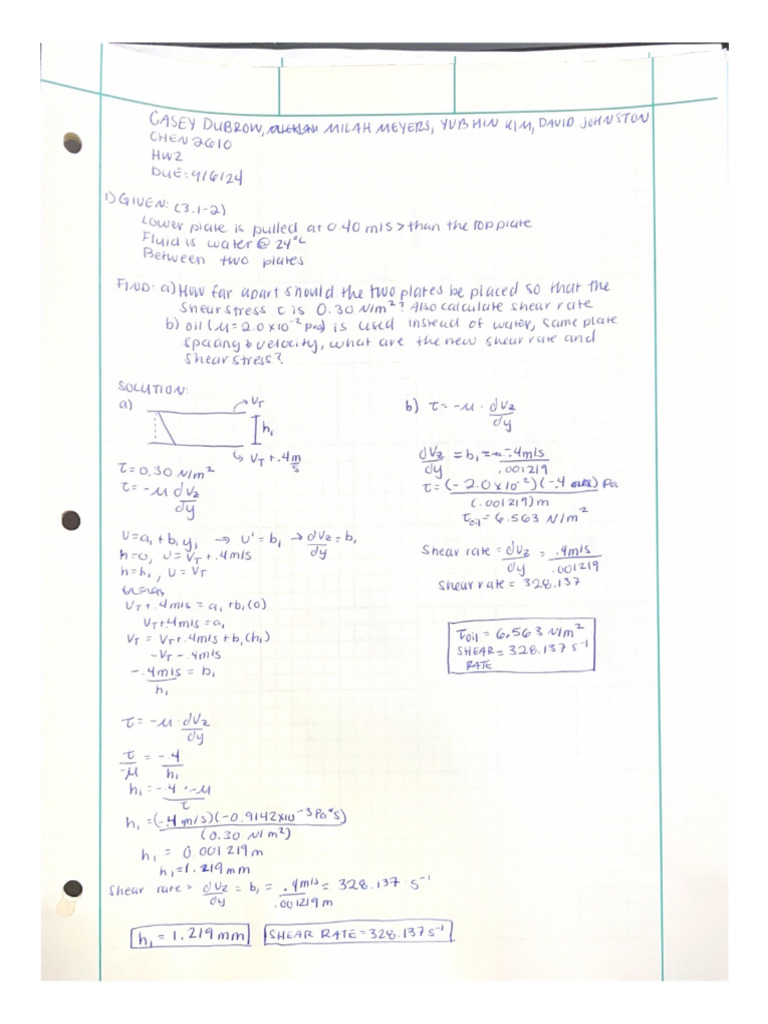 CASEY DUBROW, MILAH MEYERS, YUBHIN KIM, DAVID JOHNSTON
CHEN 2610
HW2
DUE: 9/6/24
1) GIVEN: (3.1-2)
Lower plate is pulled at 0.40 m/s > than the top plate
Fluid is water @ 24°C
Between two plates
FIND: a) How far apart should the two plates be placed so that the
shear stress τ is 0.30 N/m²? Also calculate shear rate
b) oil (μ = 2.0 x 10⁻² Pas) is used instead of water, same plate
spacing & velocity, what are the new shear rate and
shear stress?
SOLUTION:
a)
V_T
h₁
V_T + .4 m/s
τ = 0.30 N/m²
τ = -μ dVz/dy
U = a₁ + b₁y₁ → U' = b₁ → dVz/dy = b₁
h = 0, U = V_T + .4m/s
h = h₁, U = V_T
V_T + .4m/s = a₁ + b₁(0)
V_T + .4m/s = a₁
V_T = V_T + .4m/s + b₁(h₁)
-V_T - .4m/s
-.4m/s / h₁ = b₁
τ = -μ · dVz/dy
τ/-μ = -.4/h₁
h₁ = -.4 · -μ / τ
h₁ = (-.4 m/s)(-0.9142x10⁻³ Pa*s) / (0.30 N/m²)
h₁ = 0.001219m
h₁ = 1.219mm
Shear rate = dVz/dy = b₁ = .4m/s / .001219m = 328.137 s⁻¹
h₁ = 1.219mm
SHEAR RATE = 328.137 s⁻¹
b) τ = -μ · dVz/dy
dVz/dy = b₁ = -.4m/s / .001219
τ = (-2.0 x 10⁻²)(-.4) Pa / (.001219)m
τoil = 6.563 N/m²
Shear rate = dVz/dy = .4m/s / .001219
Shear rate = 328.137
τoil = 6.563 N/m²
SHEAR RATE = 328.137 s⁻¹